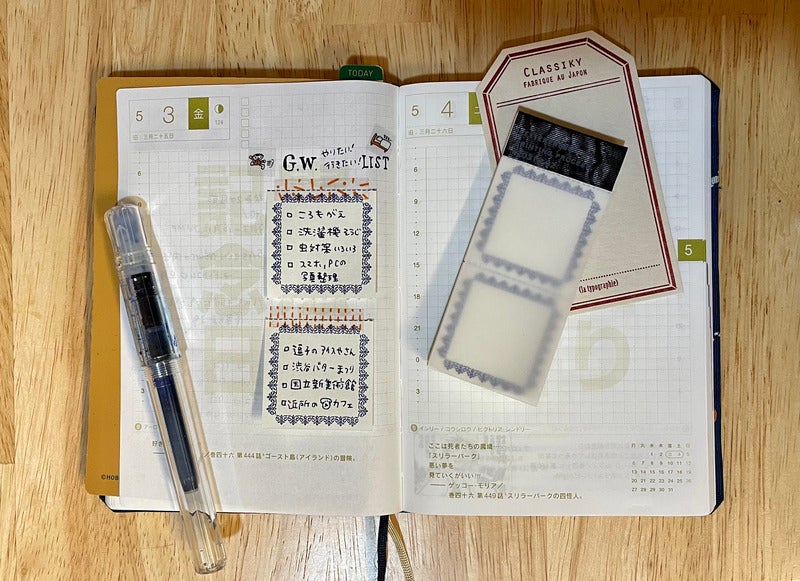 TODAY
5 3 金
124
旧:三月二十五日
G.W. やりたい! 行きたい! LIST
ころもがえ
洗濯機そうじ
虫対策いろいろ
スマホ,PCの
写真整理
逗子のアイスやさん
渋谷バターまつり
国立新美術館
近所の カフェ
好き
/巻四十六 第444話"ゴースト島(アイランド)の冒険。
©HOB
5 4
旧:三月二十六日
CLASSIKY
FABRIQUE AU JAPON
(la typographie)
5
6
12
15
18
21
0
3
インリー/コウシロウ/ビクトリア・シンドリー
ここは死者たちの魔境
「スリラーパーク」
悪い夢を
見ていくがいい!!!
――ゲッコー・モリア/
巻四十六 第449話"スリラーパークの四怪人。
月 火 水 木 金 土 日
1 2 3 4 5
6 7 8 9 10 11 12
13 14 15 16 17 18 19
20 21 22 23 24 25 26
27 28 29 30 31